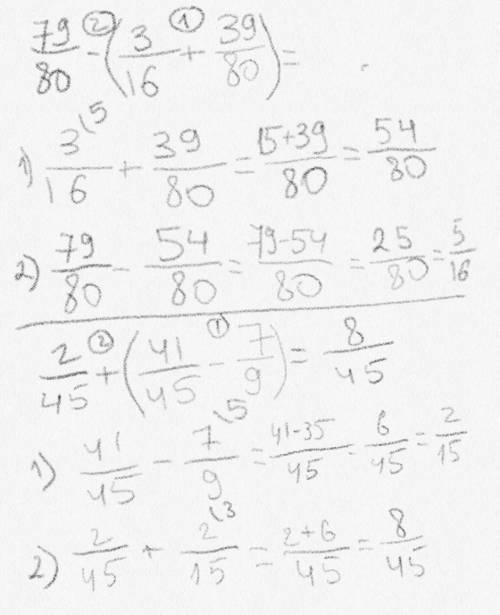 79/80 -② (3/16 +① 39/80) =
1) 3\5/16 + 39/80 = 15+39/80 = 54/80
2) 79/80 - 54/80 = 79-54/80 = 25/80 = 5/16
2/45 +② (41/45 -① 7/9) = 8/45
1) 41/45 - 7\5/9 = 41-35/45 = 6/45 = 2/15
2) 2/45 + 2\3/15 = 2+6/45 = 8/45